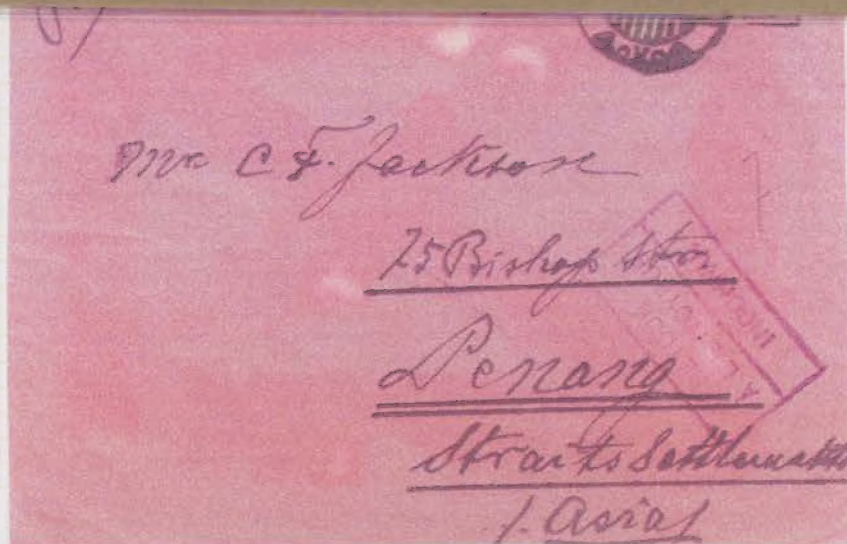 Mr C F. Jackson
75 Bishop Str
Penang
Straits Settlements
/. Asia/